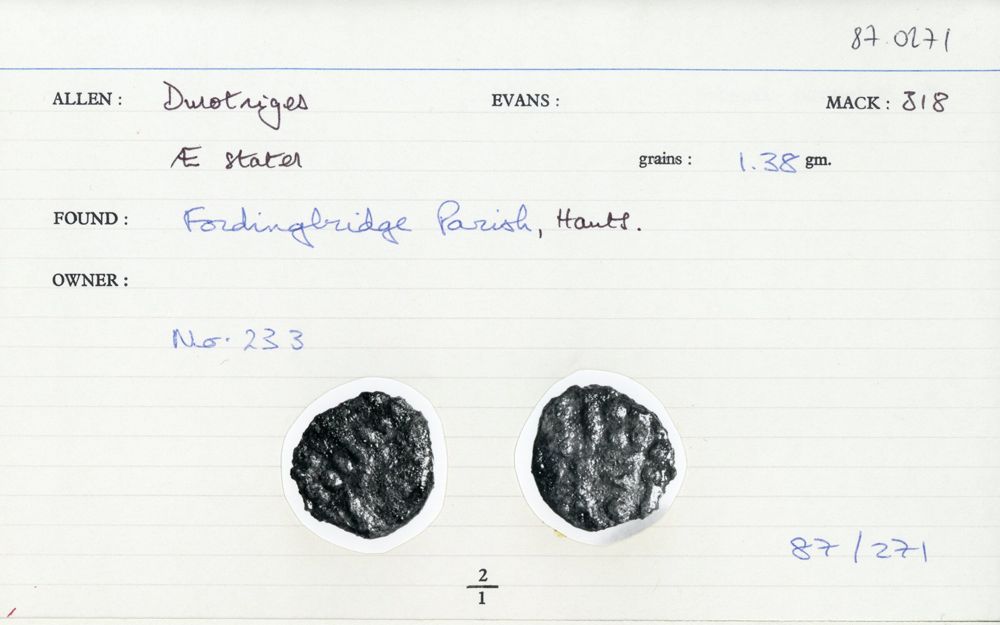 87.0271
ALLEN : Durotriges EVANS : MACK : 318
Æ stater grains : 1.38 gm.
FOUND : Fordingbridge Parish, Hants.
OWNER :
No. 233
87/271
2
1